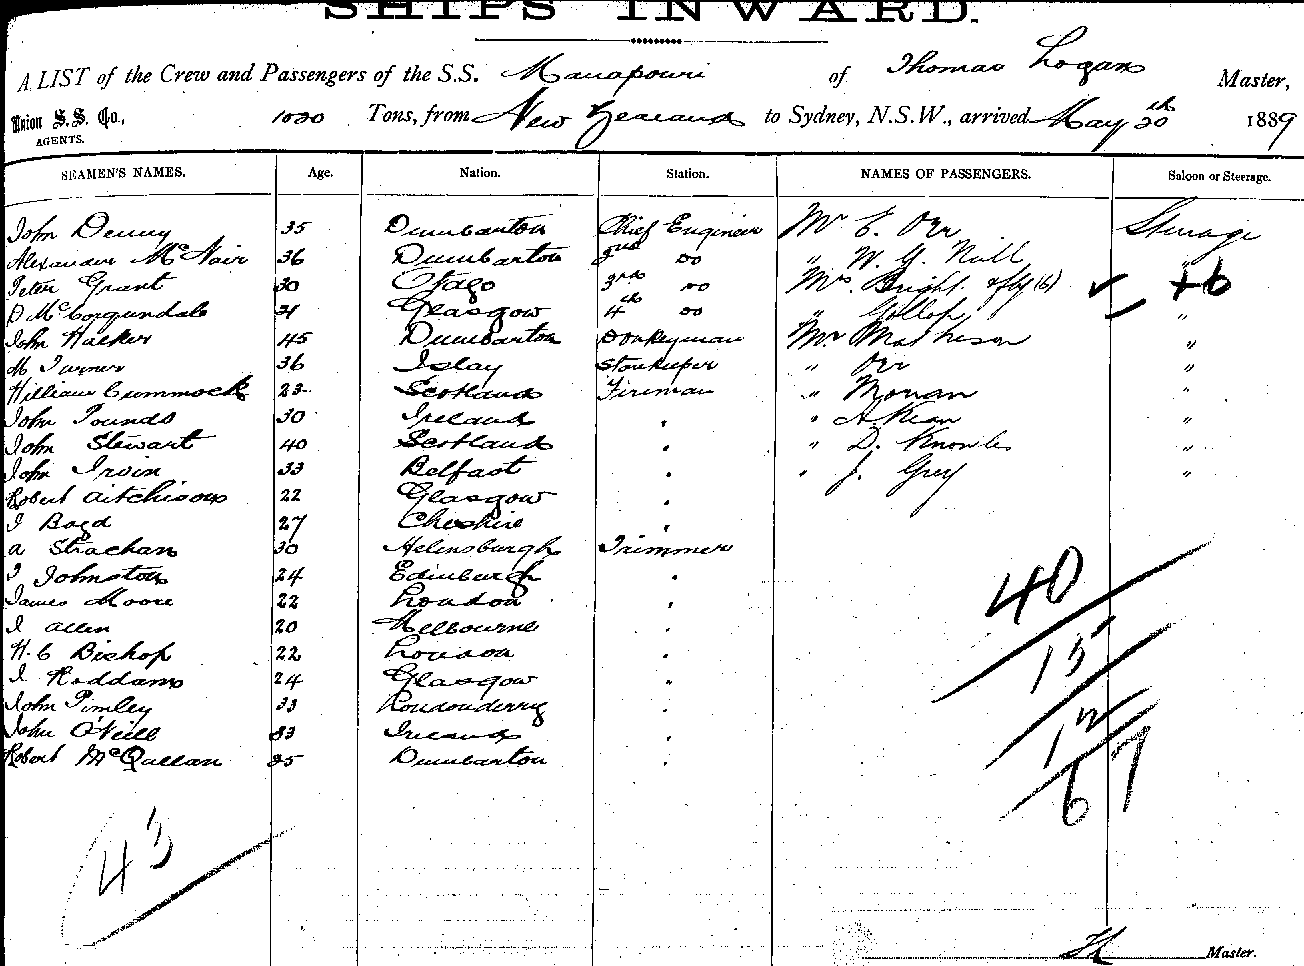 SHIPS INWARD.
A LIST of the Crew and Passengers of the S.S. Manapouri of Thomas Logan Master,
Union S.S. Co., AGENTS. 1020 Tons, from New Zealand to Sydney, N.S.W., arrived May 20th 1889
SEAMEN'S NAMES. Age. Nation. Station. NAMES OF PASSENGERS. Saloon or Steerage.
John Denny 35 Dumbarton Chief Engineer Mr E. Orr Steerage
Alexander McNair 36 Dumbarton 2nd do " W. G. Niell "
Peter Grant 30 Otago 3rd do Mrs Bright & fly (6) +6
D McCorqundale 31 Glasgow 4th do " Gollop "
John Hacker 45 Dumbarton Donkeyman Mr Matheson "
M Turner 36 Islay Storekeeper " Orr "
William Cummock 23 Scotland Fireman " Monan "
John Pounds 30 Ireland " " A. Kean "
John Stewart 40 Scotland " " D. Knowles "
John Irvin 33 Belfast " " J. Grey "
Robert Aitchison 22 Glasgow "
J Boyd 27 Cheshire "
A Strachan 30 Helensburgh Trimmer
J Johnston 24 Edinburgh "
James Moore 22 London "
J Allen 20 Melbourne "
H. C Bishop 22 London "
J Roddam 24 Glasgow "
John Pimley 33 Londonderry "
John O'Neill 33 Ireland "
Robert McQullan 35 Dumbarton "
40
15
12
67
43
Master.